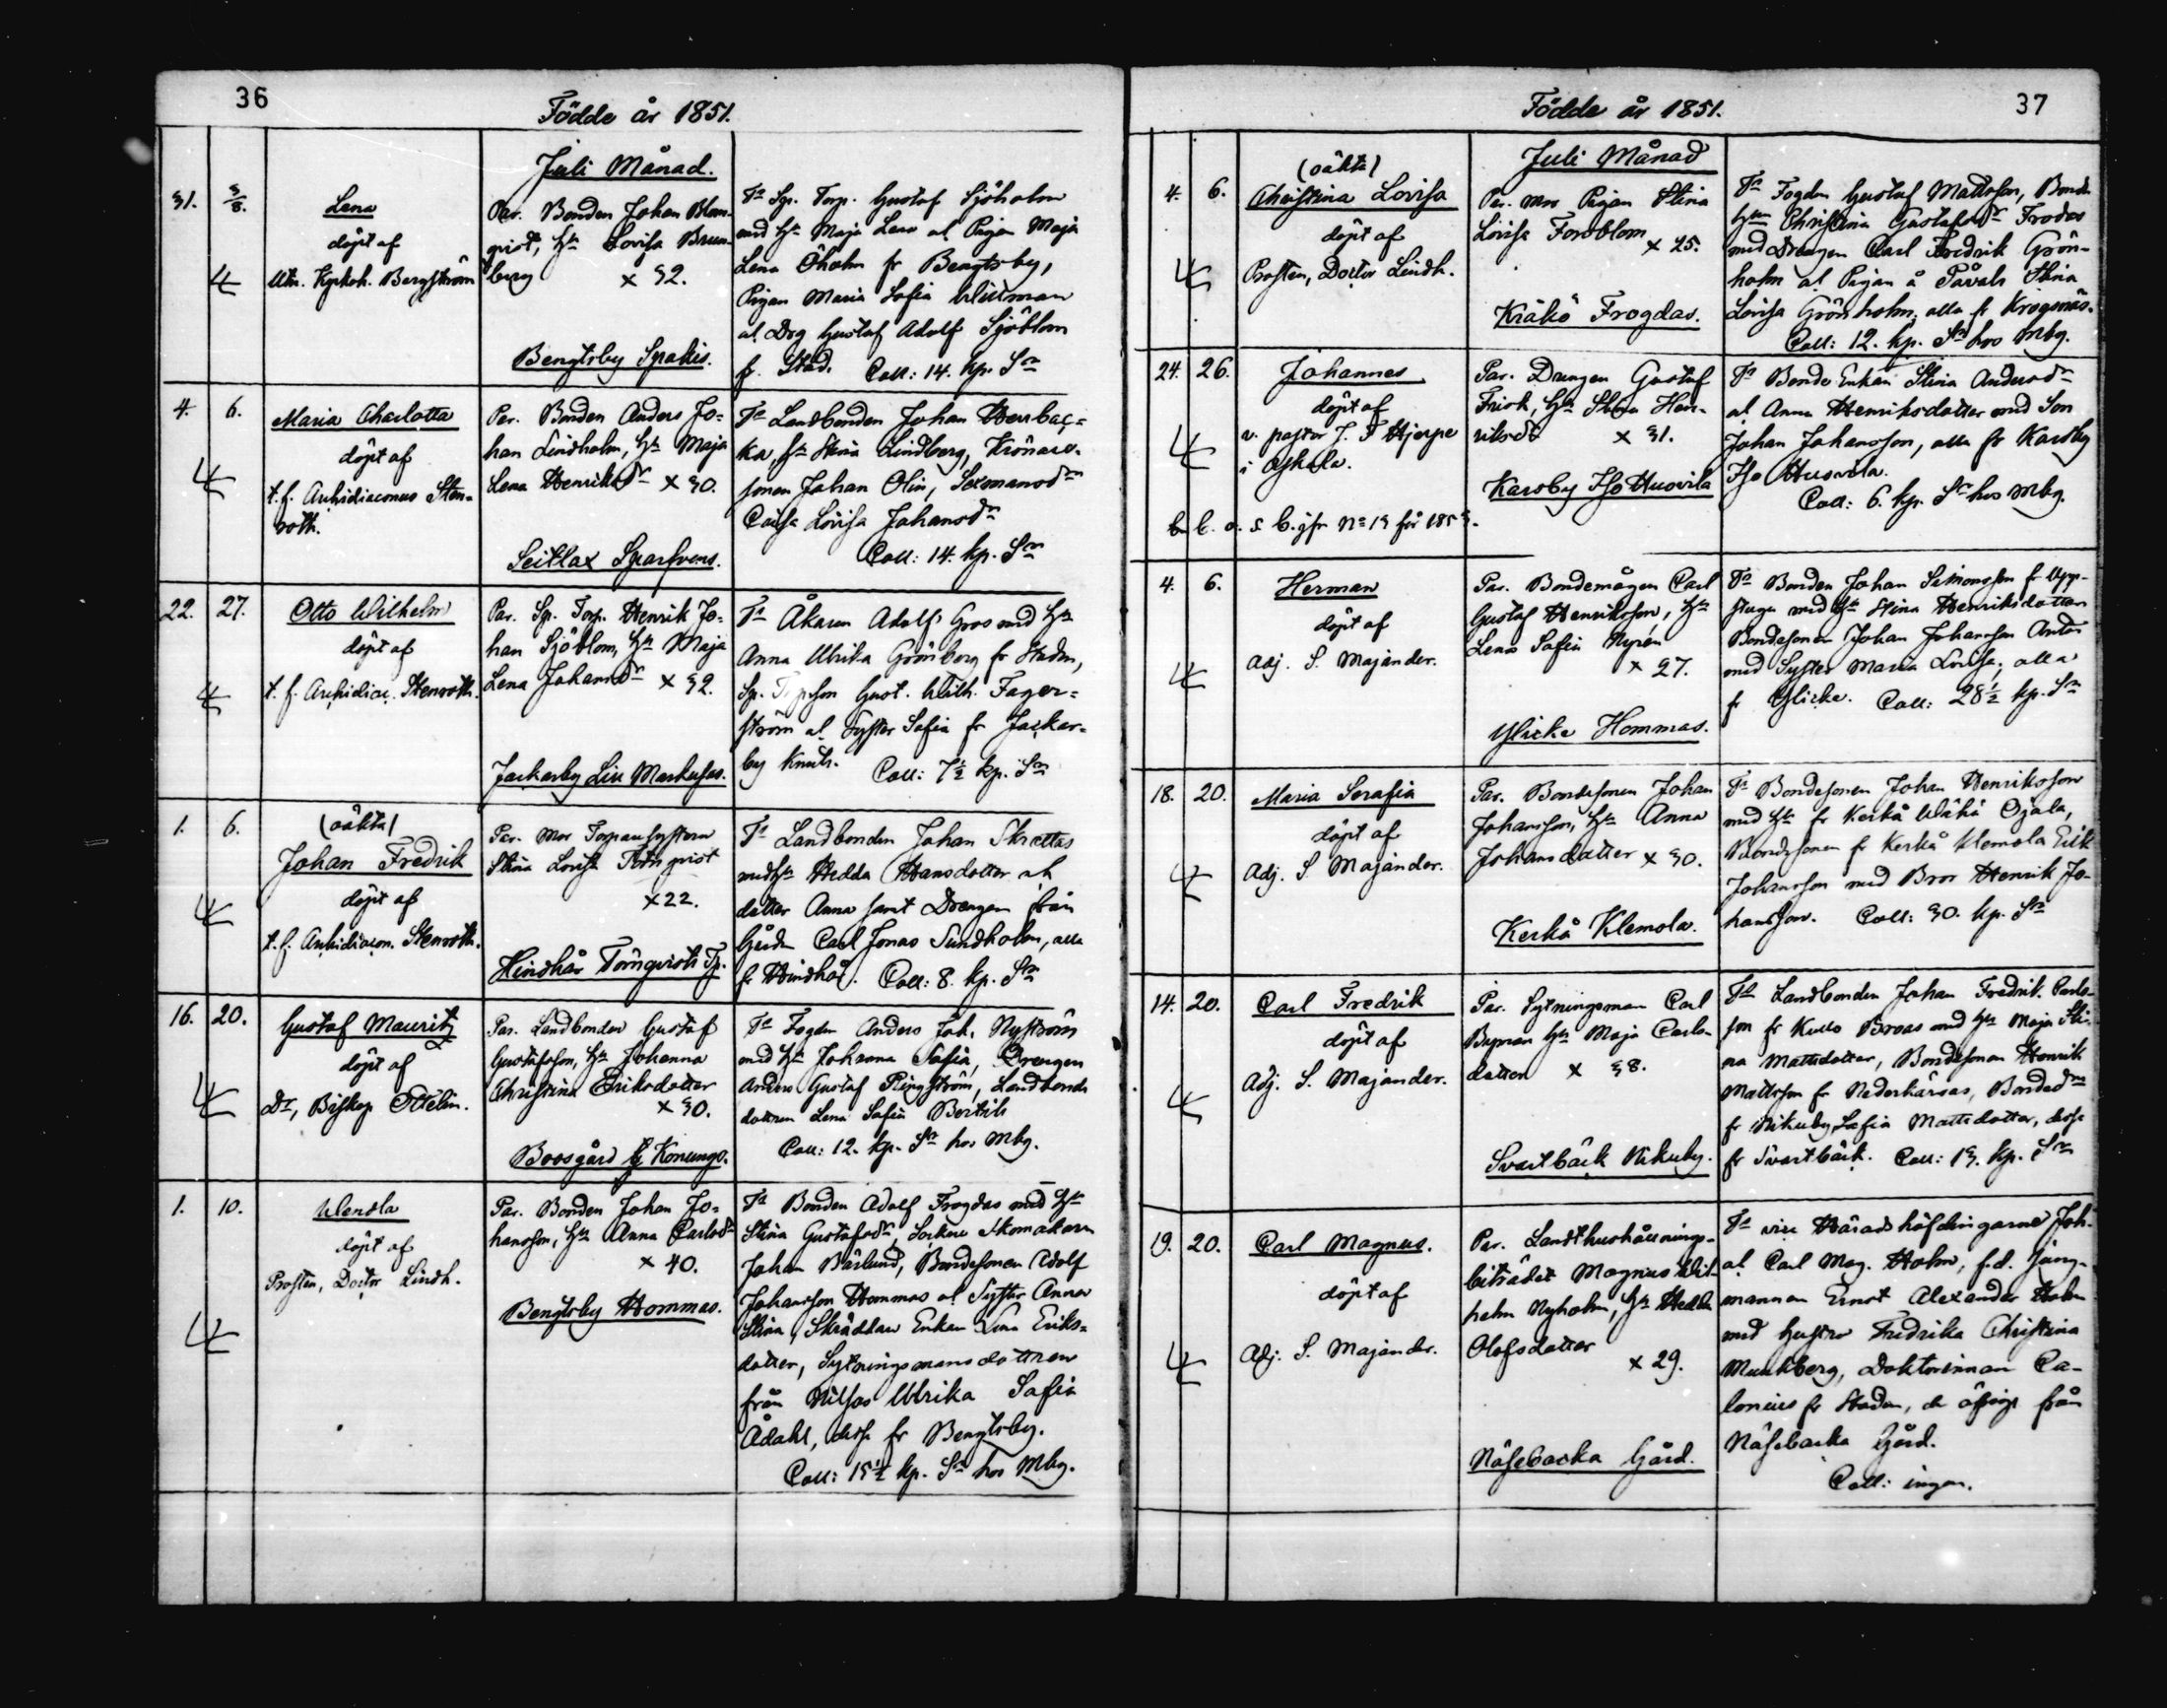 36
Födde år 1851.
Juli Månad.
31. 3/8.
Lena
döpt af
Utn. Kyrkoh. Bergström
Par. Bonden Johan Blom-
qvist, Hu Lovisa Brun-
berg × 32.
Bengtsby Spakis.
Tn Sp. Torp. Gustaf Sjöholm
med Hu Maja Lena al Pigan Maja
Lena Öholm fr Bengtsby,
Pigan Maria Sofia Wittman
al Dng Gustaf Adolf Sjöblom
f. Stad. Coll: 14. kp. Sr
4. 6.
Maria Charlotta
döpt af
t. f. Archidiaconus Sten-
roth.
Par. Bonden Anders Jo-
han Lindholm, Hu Maja
Lena Henriksdr × 30.
Seitlax Sparfvens.
Tn Landbonden Johan Herrbac-
ka, Hu Stina Lindberg, Krönare-
sonen Johan Olin, Sexmansdr
Caisa Lovisa Johansdr
Coll: 14. kp. Sr
22. 27.
Otto Wilhelm
döpt af
t. f. Archidiac. Stenroth.
Par. Sp. Torp. Henrik Jo-
han Sjöblom, Hu Maja
Lena Johansdr × 32.
Jackarby Lill Markusas.
Tn Åkaren Adolf Gros med Hu
Anna Ulrika Grönberg fr Staden,
Sp. Gust. Wilh. Fager-
ström al Syster Sofia fr Jackar-
by Knuts. Coll: 7½ kp. Sr
1. 6.
(oäkta)
Johan Fredrik
döpt af
t. f. Archidiacon. Stenroth.
Par. mor Torparesystern
Stina Lovisa Törnqvist
×22.
Hindhår Törnqvists Tp.
Tn Landbonden Johan Skrattas
med Hu Hedda Hansdotter ah
dotter Anna samt Drengen från
Gården Carl Jonas Sundholm, alla
fr Hindhår. Coll: 8. kp. Sr
16. 20.
Gustaf Mauritz
döpt af
Dr, Biskop Ottelin.
Par. Landbonden Gustaf
Gustafsson, Hu Johanna
Christina Eriksdotter
× 30.
Boosgård Konungs.
Tn Fogden Anders Joh. Nyström
med Hu Johanna Sofia, Drengen
Anders Gustaf Ringström, Landbonde
dottren Lena Sofia Bertils
Coll: 12. kp. Sr hos Mbg.
1. 10.
Wendla
döpt af
Prosten, Doctor Lindh.
Par. Bonden Johan Jo-
hansson, Hu Anna Carlsdr
× 40.
Bengtsby Hommas.
Tn Bonden Adolf Frogdas med Hu
Stina Gustafsdr, Sockne Skomakern
Johan Bärlund, Bondesonen Adolf
Johansson Hommas al Syster Anna
Stina, Skräddare Enkan Lena Eriks-
dotter, Sytningsmans dottren
från Nilsas Ulrika Sofia
Ådahl, desse fr Bengtsby.
Coll: 15½ kp. Sr hos Mbg.
37
Födde år 1851.
Juli Månad
4. 6.
(oäkta)
Christina Lovisa
döpt af
Prosten, Doctor Lindh.
Par. mor Pigan Stina
Lovisa Forsblom × 25.
Kråkö Frogdas.
Tn Fogden Gustaf Mattsson, Bonde
Hun Christina Gustafsdr Frodas
med Drengen Carl Fredrik Grön-
holm al Pigan å Påvals Stina
Lovisa Grönholm; alla fr Krogsnäs.
Coll: 12. kp. Sr hos Mbg.
24. 26.
Johannes
döpt af
v. pastor J. F Hjerpe
i Askola.
b. o. s. b. jfr No 13 för 1853.
Par. Drengen Gustaf
Frisk, Hu Stina Hen-
riksdr × 31.
Karsby Iso Huovila
Tn Bonde Enkan Stina Andersdr
al Anna Henriksdotter med Son
Johan Johansson, alla fr Karsby
Iso Huovila.
Coll: 6. kp. Sr hos Mbg.
4. 6.
Herman
döpt af
Adj. S. Majander.
Par. Bondemågen Carl
Gustaf Henriksson, Hu
Lena Sofia Nyren
× 27.
Ylicke Hommas.
Tn Bonden Johan Simonsson fr Upp-
stuga med Hu Stina Henriksdotter
Bondesonen Johan Johansson Antas
med Syster Maria Lovisa; alla
fr Ylicke. Coll: 28½ kp. Sr
18. 20.
Maria Serafia
döpt af
Adj. S. Majander.
Par. Bondesonen Johan
Johansson, Hu Anna
Johansdotter × 30.
Kerkå Klemola.
Tn Bondesonen Johan Henriksson
med Hu fr Kerkå Wähä Ojala,
Bondesonen fr Kerkå Klemola Erik
Johansson med Bror Henrik Jo-
hansson. Coll: 30. kp. Sr
14. 20.
Carl Fredrik
döpt af
Adj. S. Majander.
Par. Sytningsman Carl
Byman Hu Maja Carls-
dotter × 38.
Svartbäck Nikuby.
Tn Landbonden Johan Fredrik Carls-
son fr Kullo Broas med Hu Maja Sti-
na Mattsdotter, Bondesonen Henrik
Mattsson fr Nederhärsas, Bondedn
fr Nikuby Sofia Mattsdotter, desse
fr Svartbäck. Coll: 13. kp. Sr
19. 20.
Carl Magnus.
döpt af
Adj. S. Majander.
Par. Landthushållnings-
biträdet Magnus Wil-
helm Nyholm, Hu Hedda
Olofsdotter × 29.
Näsebacka Gård.
Tn vice Häradshöfdingarne Joh.
al Carl Mag. Holm, f.d. Jung-
mannen Ernst Alexander Holm
med hustru Fredrika Christina
Munkberg, Doktorinnan Ca-
lonius fr Staden, de öfrige från
Näsebacka Gård.
Coll: ingen.